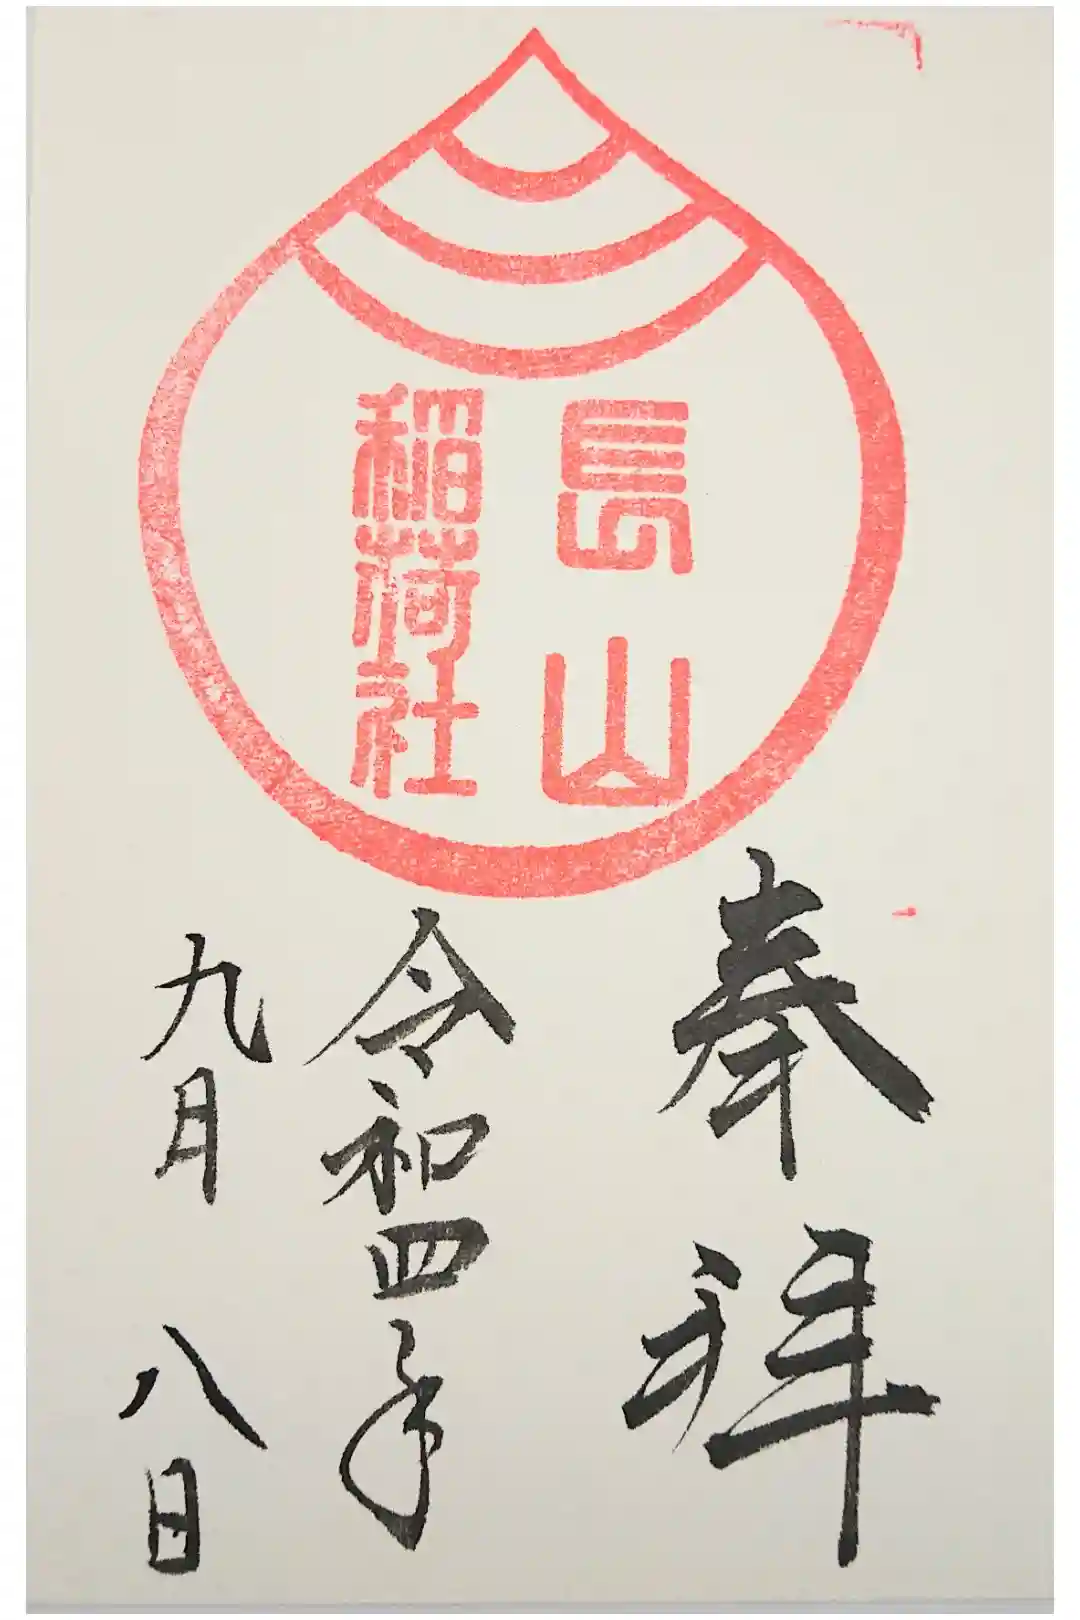 長山
稲荷社
奉拝
令和四年
九月八日